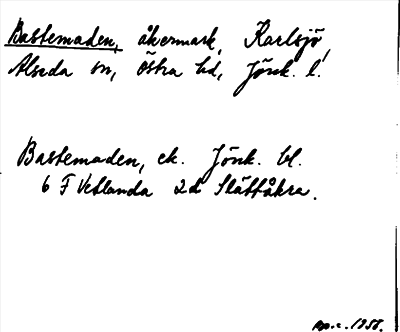 Bastemaden, åkermark, Karlsjö,
Alseda sn, Östra hd, Jönk. l.
Bastemaden, ek. Jönk. bl.
6 F Vetlanda 2d Slättåkra.
1958.